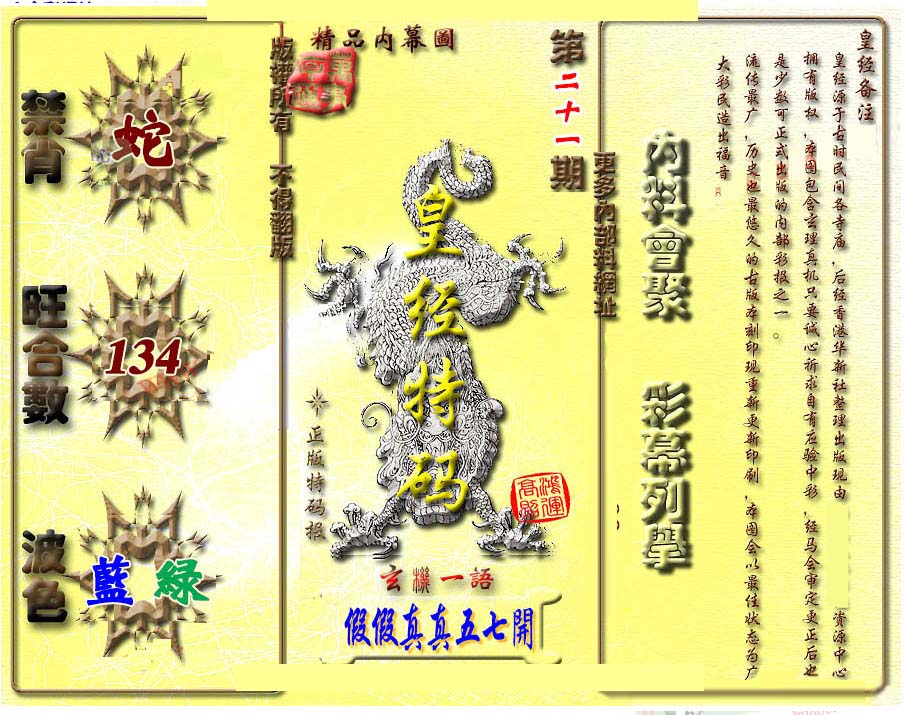 精品内幕圖
版權所有 不得翻版
第二十一期
更多內部料網址
禁肖
蛇
旺合數
134
波色
藍 綠
皇经特码
正版特码报
鴻運高照
玄機一語
假假真真五七開
內料會聚 彩幕列舉
皇经备注
皇经源于古时民间各寺庙，后经香港华新社整理出版现由 资源中心
拥有版权，本图包含玄理真机只要诚心祈求自有应验中彩，经马会审定更正后也
是少数可正式出版的内部彩报之一。
流传最广，历史也最悠久的古版本刻印现重新更新印刷，本图会以最佳状态为广
大彩民造出福音